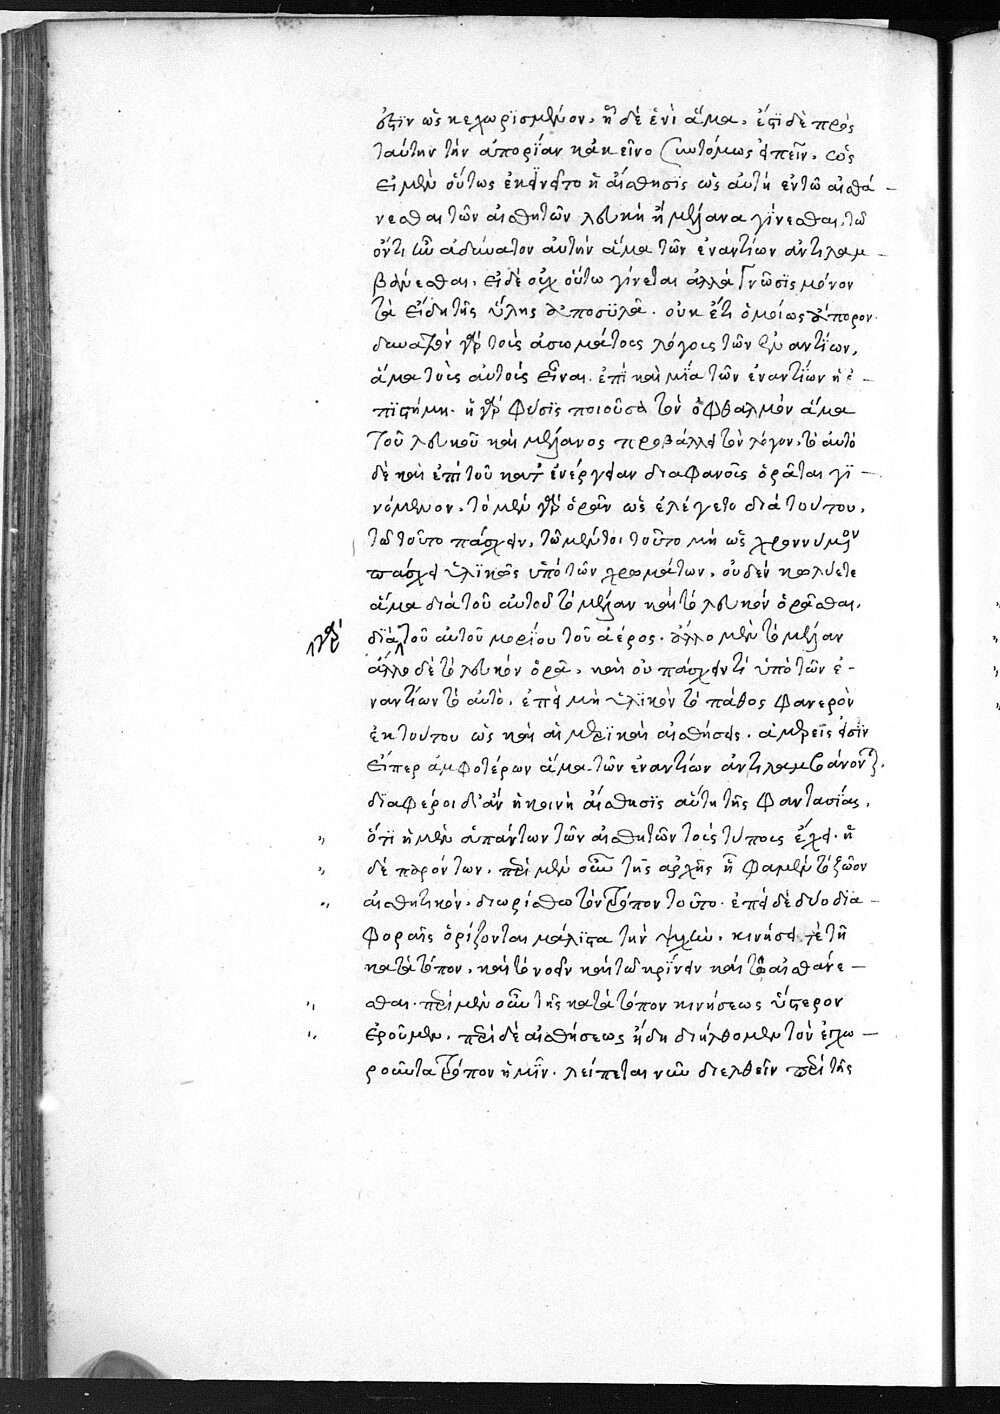 ἐστὶν ὡς κεχωρισμένον, ἢ δὲ ἑνὶ ἅμα, ἔτι δὲ πρὸς
ταύτην τὴν ἀπορίαν κἀκεῖνο συντόμως εἰπεῖν, ὡς
εἰ μὲν οὕτως ἐκινεῖτο ἡ αἴσθησις ὡς αὐτὴ ἐν τῶ αἰσθά-
νεσθαι τῶν αἰσθητῶν λευκὴ ἢ μέλαινα γίνεσθαι, τῶ
ὄντι ἦν ἀδύνατον αὐτὴν ἅμα τῶν ἐναντίων ἀντιλαμ-
βάνεσθαι. εἰ δὲ οὐχ οὕτω γίνεται ἀλλὰ γνῶσις μόνον
τὰ εἴδη τῆς ὕλης ἀποσυλᾶ. οὐκ ἔτι ὁμοίως ἄπορον.
δυνατὸν γὰρ τοῖς ἀσωμάτοις λόγοις τῶν ἐναντίων,
ἅμα τοῖς αὐτοῖς εἶναι. ἐπεὶ καὶ μία τῶν ἐναντίων ἡ ἐ-
πιστήμη. ἡ γὰρ φύσις ποιοῦσα τὸν ὀφθαλμὸν ἅμα
τοῦ λευκοῦ καὶ μέλανος προβάλλει τὸν λόγον. τὸ αὐτὸ
δὲ καὶ ἐπὶ τοῦ κατ' ἐνέργειαν διαφανοῦς ὁρᾶται γι-
νόμενον. τὸ μὲν γὰρ ὁρᾶν ὡς ἐλέγετο διὰ τούτου,
τῶ τοῦτο πάσχειν, τῶ μέντοι τοῦτο μὴ ὡς χρωννύμενον
πάσχει ὑλικῶς ὑπὸ τῶν χρωμάτων, οὐδὲν κωλύεται
ἅμα διὰ τοῦ αὐτοῦ τὸ μέλαν καὶ τὸ λευκὸν ὁρᾶσθαι.
γὰρ διὰ τοῦ αὐτοῦ μορίου τοῦ ἀέρος. ἄλλο μὲν τὸ μέλαν
ἄλλο δὲ τὸ λευκὸν ὁρᾶ, καὶ οὐ πάσχει τι ὑπὸ τῶν ἐ-
ναντίων τὸ αὐτό. ἐπεὶ μὴ ὑλικὸν τὸ πάθος φανερὸν
ἐκ τούτου ὡς καὶ αἱ μὲν καὶ αἰσθήσεις. ἀμερεῖς εἰσὶν
εἴπερ ἀμφοτέρων ἅμα τῶν ἐναντίων ἀντιλαμβάνονται.
διαφέροι δ' ἂν ἡ κοινὴ αἴσθησις αὕτη τῆς φαντασίας,
ὅτι ἡ μὲν ἁπάντων τῶν αἰσθητῶν τοὺς τύπους ἔχει. ἡ
δὲ παρόντων. περὶ μὲν οὖν τῆς ἀρχῆς ᾗ φαμὲν τὸ ζῶον
αἰσθητικόν. διωρίσθω τὸν τρόπον τοῦτο. ἐπεὶ δὲ δύο δια-
φοραῖς ὁρίζονται μάλιστα τὴν ψυχὴν. κινήσει τε τῆ
κατὰ τόπον. καὶ τῶ νοεῖν καὶ τῶ κρίνειν καὶ τῶ αἰσθάνε-
σθαι. περὶ μὲν οὖν τῆς κατὰ τόπον κινήσεως ὕστερον
ἐροῦμεν. περὶ δὲ αἰσθήσεως ἤδη διήλθομεν τὸν ἐγχω-
ροῦντα τρόπον ἡμῖν. λείπεται νῦν διελθεῖν περὶ τῆς